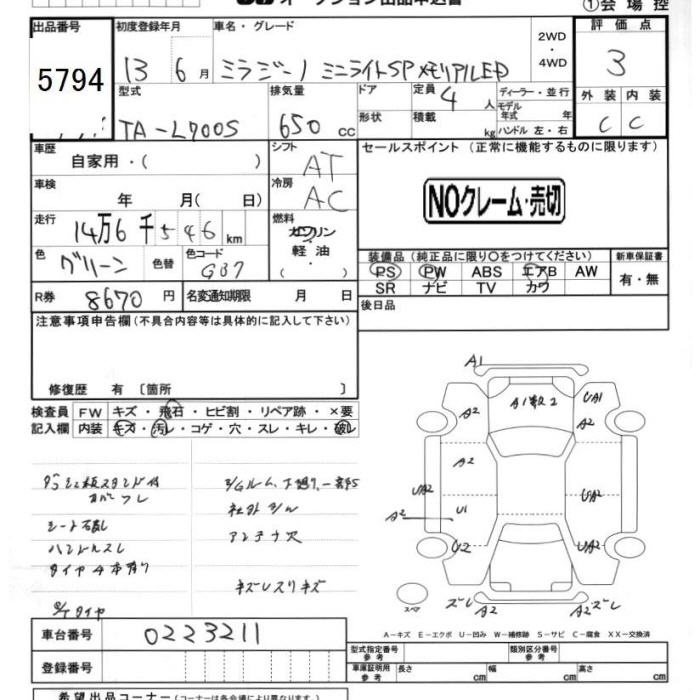 オークション出品申込書
①会場控
出品番号 初度登録年月 車名・グレード 2WD・4WD 評価点
5794 13 6月 ミラジーノ ミニライトSPメモリアルED 3
型式 排気量 ドア 定員 4人 ディーラー・並行 外装 内装
TA-L700S 650cc 形状 積載 kg モデル年式 年 ハンドル 左・右 C C
車歴 自家用・( ) シフト AT セールスポイント (正常に機能するものに限ります)
車検 年 月( 日) 冷房 AC NOクレーム・売切
走行 14万6千546km 燃料 ガソリン・軽油・( )
色 グリーン 色替 色コード G37 装備品(純正品に限り○をつけてください) 新車保証書
PS PW ABS エアB AW 有・無
SR ナビ TV カワ
R券 8670円 名変通知期限 月 日 後日品
注意事項申告欄(不具合内容等は具体的に記入して下さい)
修復歴 有〔箇所 〕
検査員 FW キズ・飛石・ヒビ割・リペア跡・×要
記入欄 内装 キズ・汚レ・コゲ・穴・スレ・キレ・破レ
シート破レ
ハンドルスレ
アンテナ穴
キズレスリキズ
タイヤ
A1
A1 A2 UA1
A2 A2
A2
UA2 U1 UA2
A2
U2 UA2
スペア ズレ A2 A2 ズレ
A-キズ E-エクボ U-凹み W-補修跡 S-サビ C-腐食 XX-交換済
車台番号 0223211 型式指定番号 参考 類別区分番号 参考
登録番号 車庫証明用 参考 長さ cm 幅 cm 高さ cm
希望出品コーナー(コーナーは各会場により異なります)